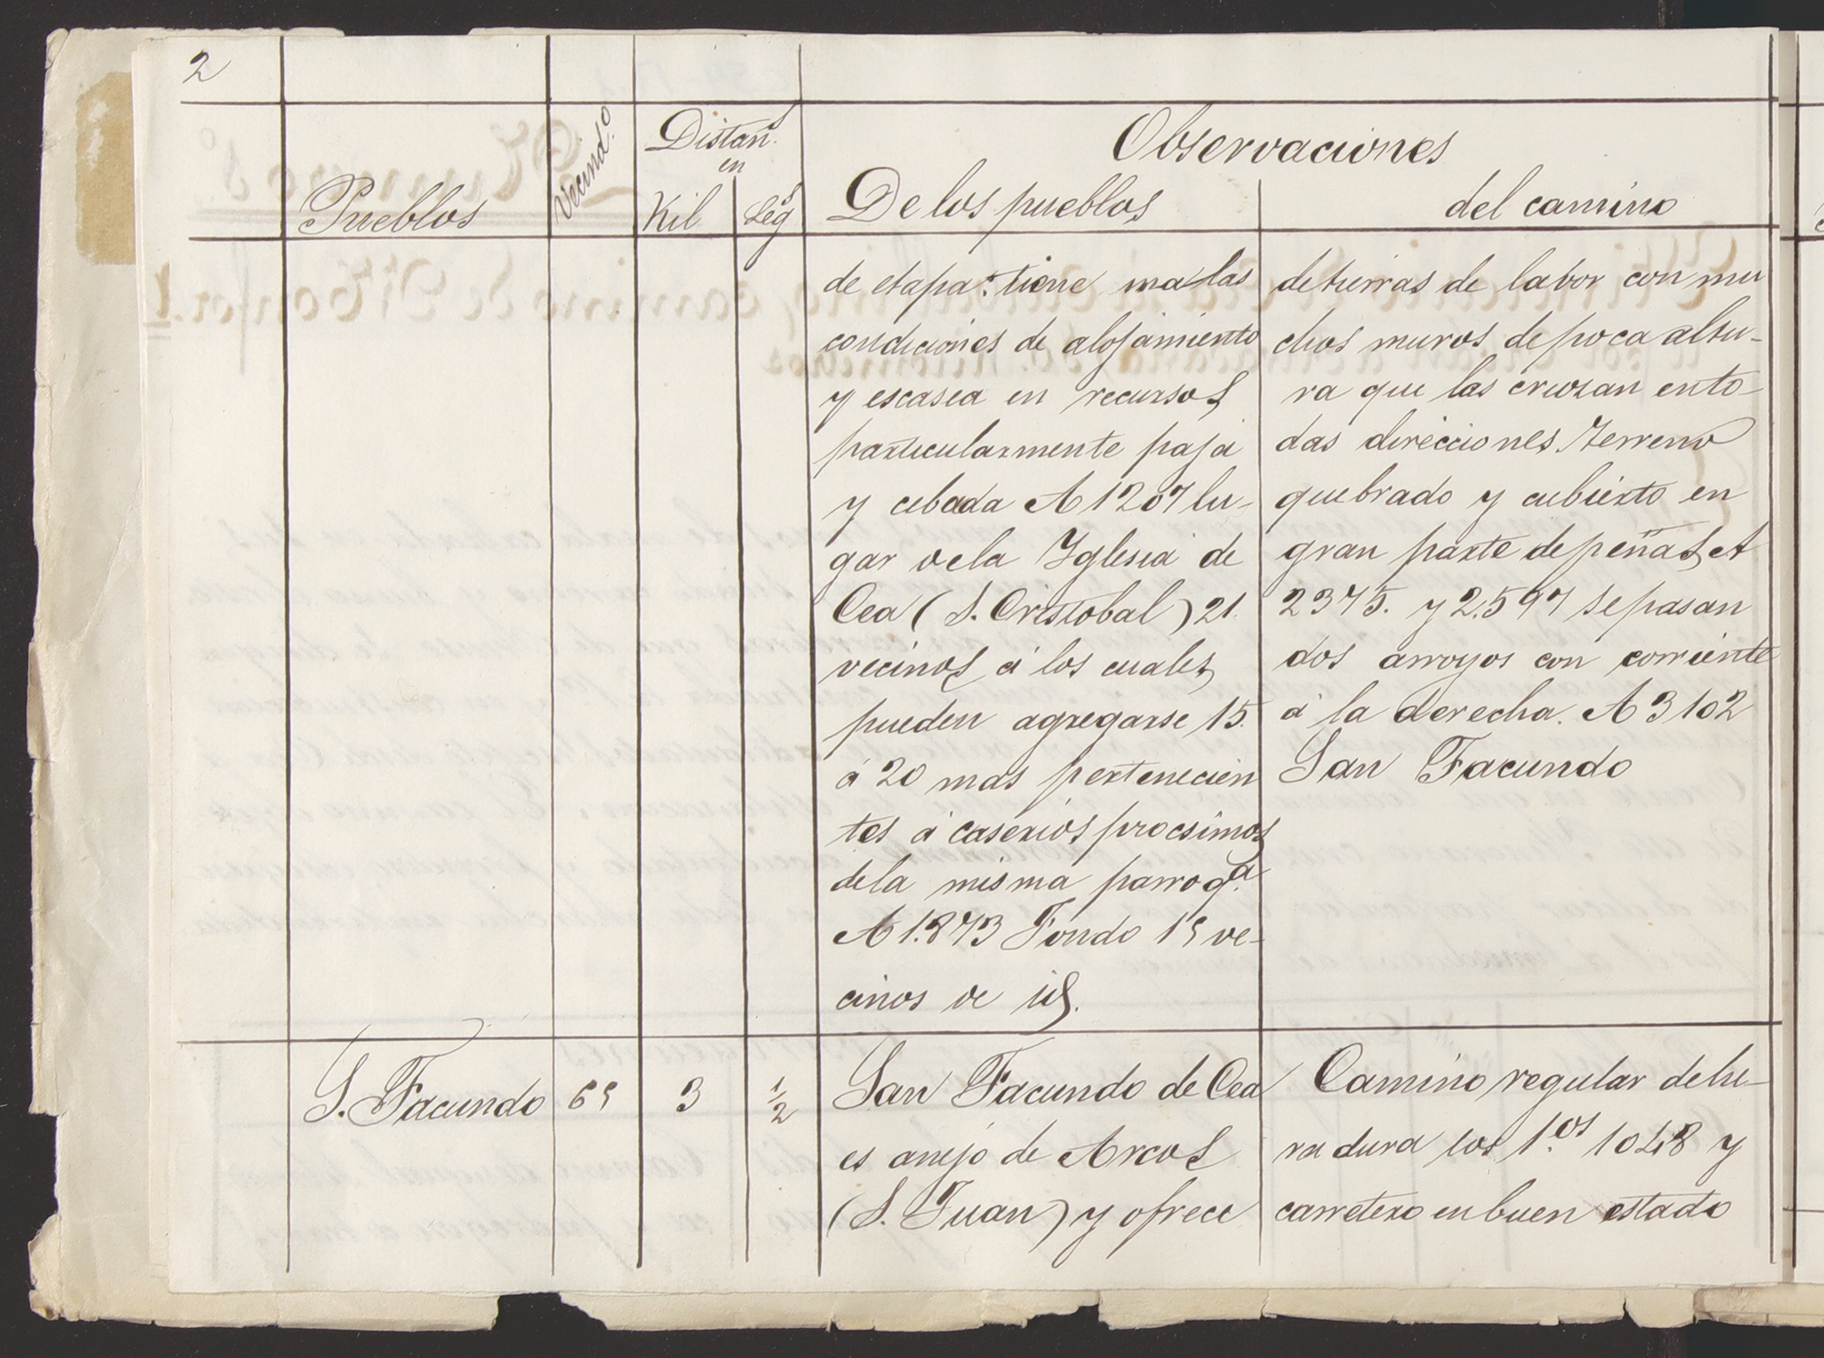 2
Pueblos
Vecind.º
Distan.s
en
Kil
Leg.s
Observaciones
De los pueblos
del camino
de etapa: tiene malas
condiciones de alojamiento
y escasea en recursos
particularmente paja
y cebada A 1207 lu-
gar de la Iglesia de
Cea (S. Cristobal) 21.
vecinos á los cuales
pueden agregarse 15.
á 20 mas pertenecien
tes á caserios procsimos
dela misma parroq.a
A 1.873 Fondo 15 ve-
cinos de id.
de tierras de labor con mu
chos muros de poca altu-
ra que las cruzan en to-
das direcciones. Terreno
quebrado y cubierto en
gran parte de peñas, A
2375. y 2.597 se pasan
dos arroyos con corriente
á la derecha. A 3102
San Facundo
S. Facundo
65
3
1/2
San Facundo de Cea
es anejo de Arcos
(S. Juan) y ofrece
Camino regular de he-
radura los 1.os 1048 y
carretero en buen estado